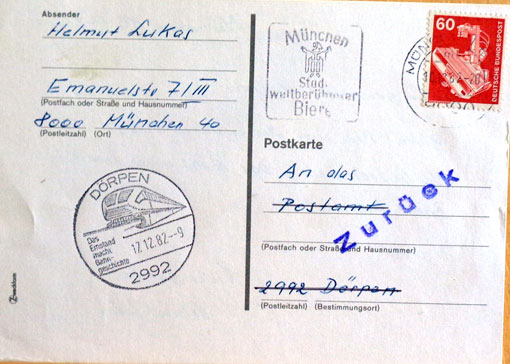 Absender
Helmut Lukas
Emanuelstr 7/III
(Postfach oder Straße und Hausnummer)
8000 München 40
(Postleitzahl) (Ort)
München
Stadt
weltberühmter
Biere
60
DEUTSCHE BUNDESPOST
Postkarte
An das
Postamt
(Postfach oder Straße und Hausnummer)
2992 Dörpen
(Postleitzahl) (Bestimmungsort)
Zurück
DÖRPEN
Das
Emsland
macht
Bahn-
geschichte
17.12.82--9
2992